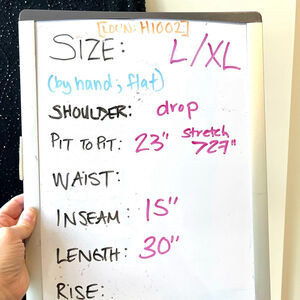 [LOC'N: H1002]
SIZE: L/XL
(by hand, flat)
SHOULDER: drop
PIT TO PIT: 23" stretch
727"
WAIST:
INSEAM: 15"
LENGTH: 30"
RISE: